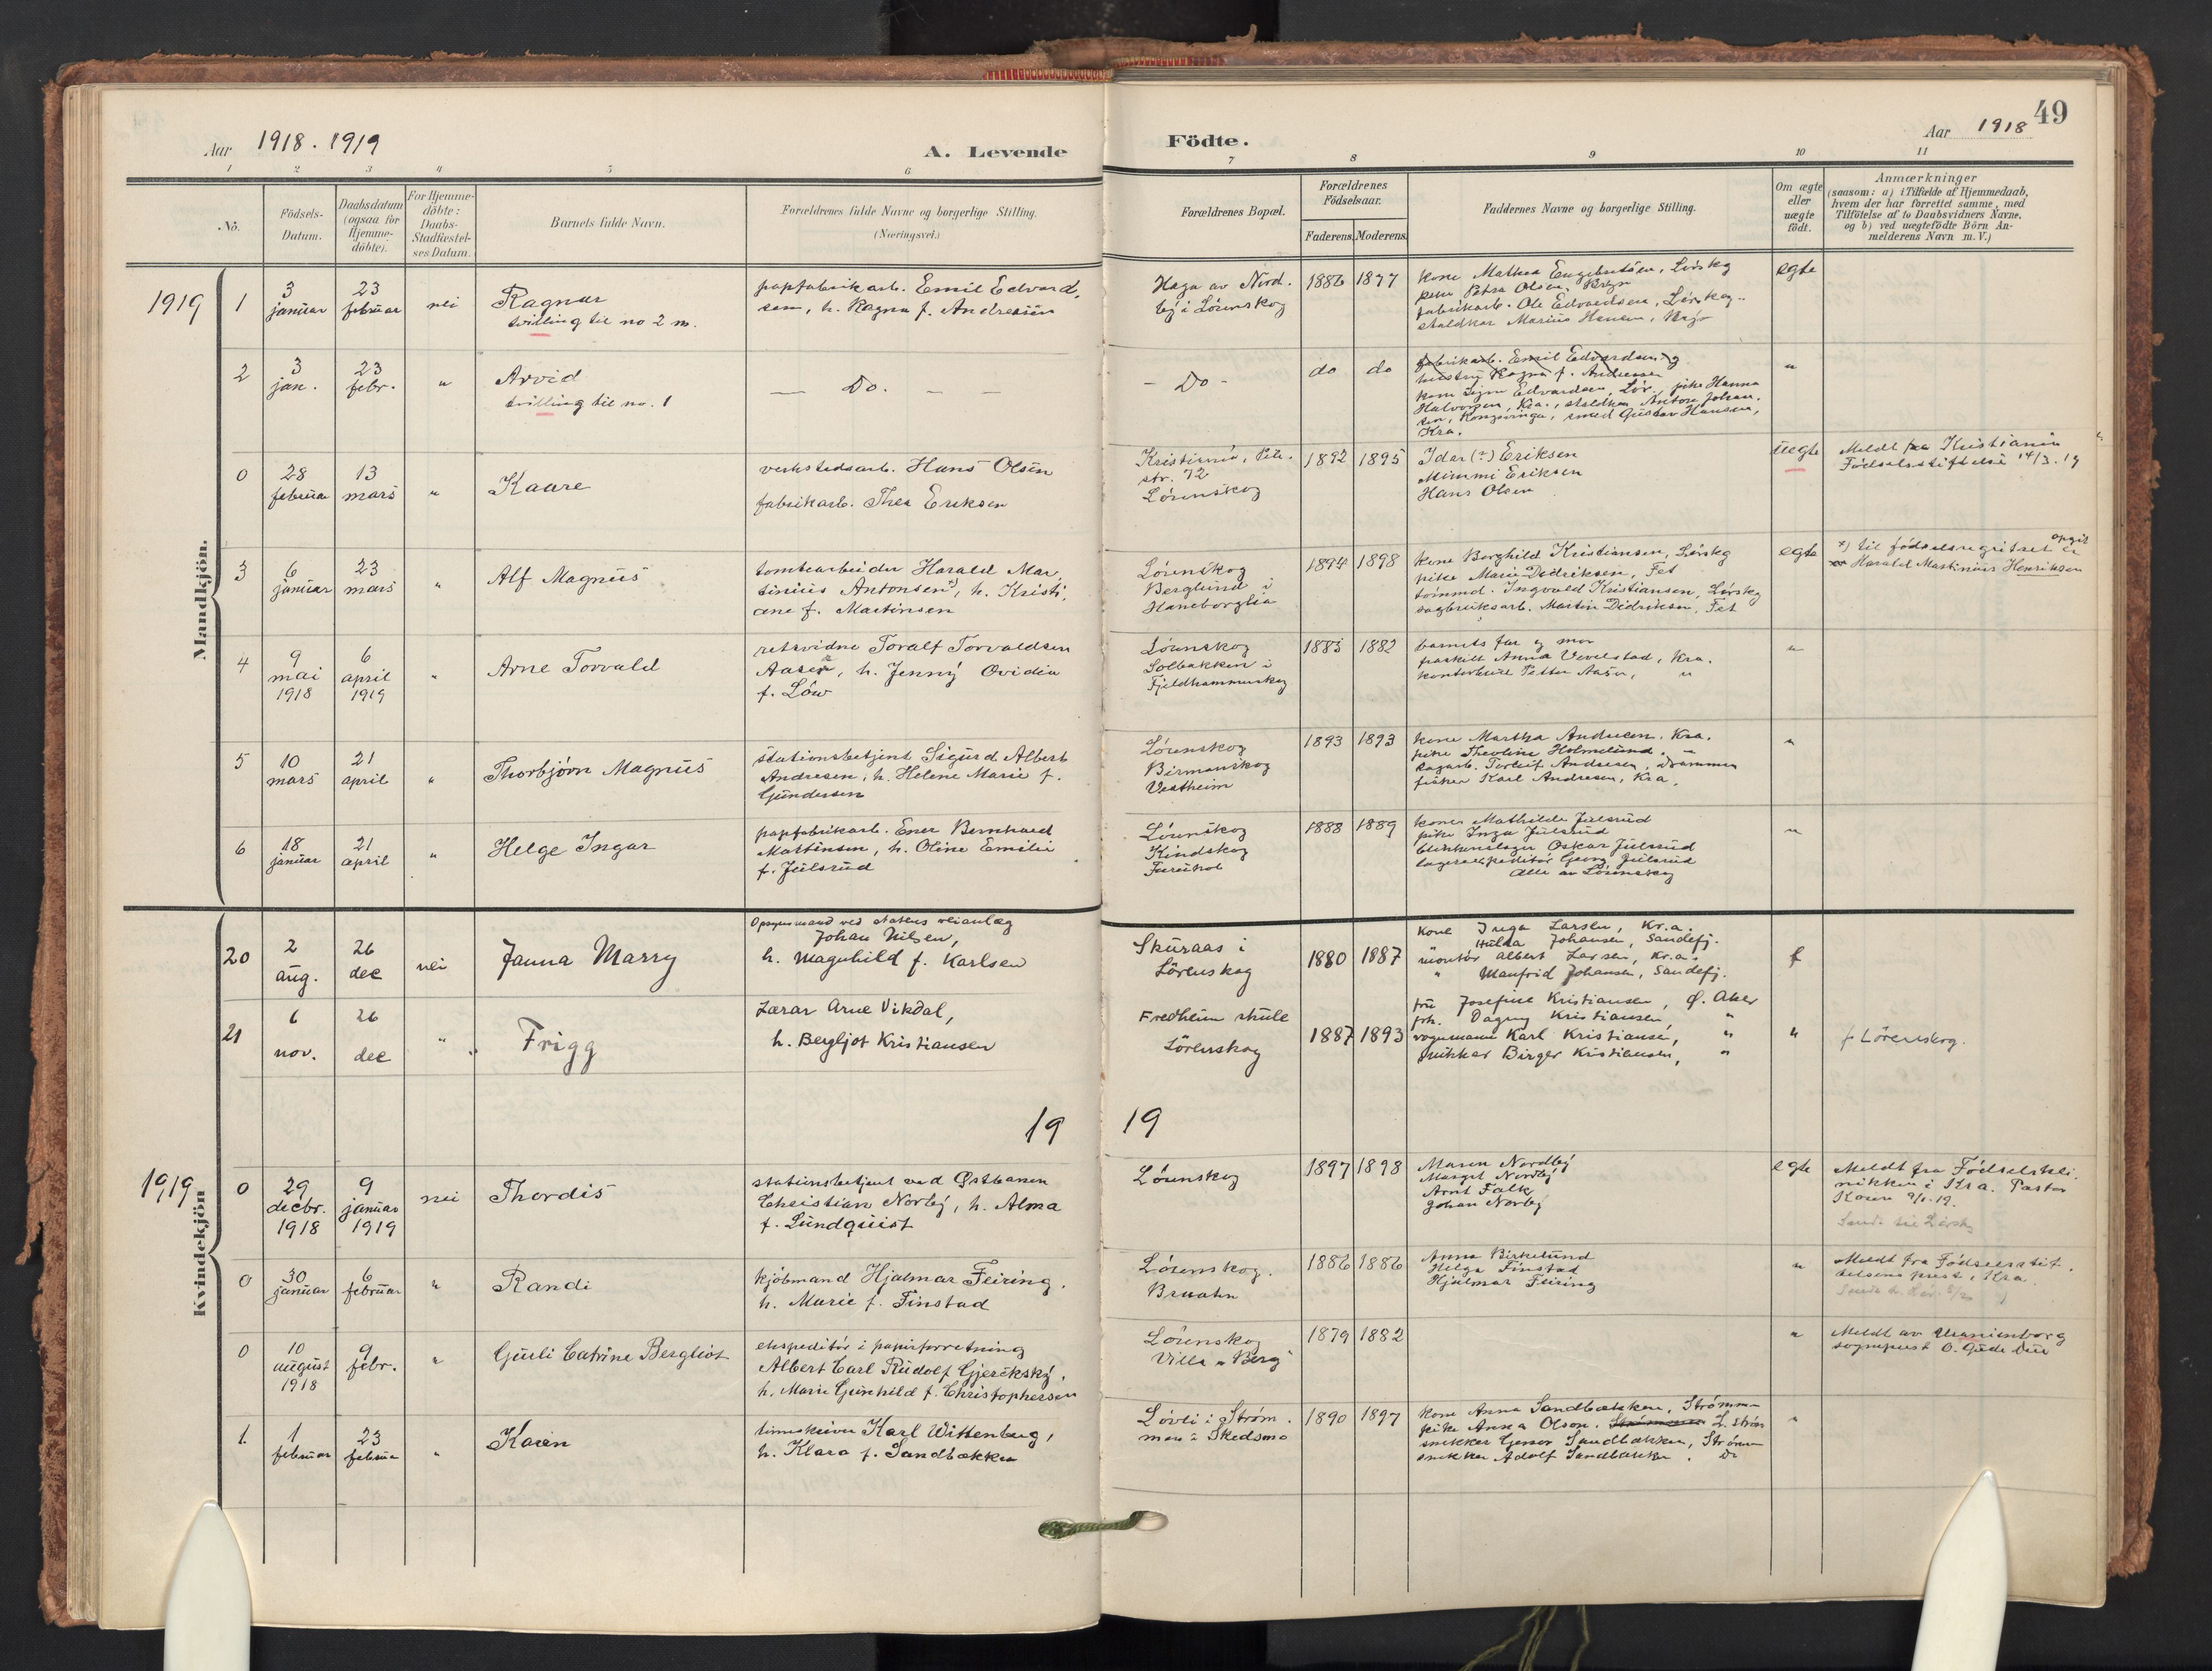 Aar 1918. 1919
A. Levende
Födte.
Aar 1918
49
1 2 3 4 5 6 7 8 9 10 11
No.
Födsels-
Datum.
Daabsdatum
(ogsaa for
Hjemme-
döbte).
For Hjemme-
döbte:
Daabs-
Stadfæstel-
ses Datum.
Barnets fulde Navn.
Forældrenes fulde Navne og borgerlige Stilling.
(Næringsvei.)
Forældrenes Bopæl.
Forældrenes
Födselsaar.
Faderens. Moderens.
Faddernes Navne og borgerlige Stilling.
Om ægte
eller
uægte
födt.
Anmærkninger
(saasom: a) i Tilfælde af Hjemmedaab,
hvem der har forrettet samme, med
Tilföielse af to Daabsvidners Navne,
og b) ved uægtefödte Börn An-
melderens Navn m. V.)
Mandkjön.
1919
1
3
januar
23
februar
nei
Ragnar
tvilling til no 2 m.
papfabrikarb. Emil Edvard,
sen, h. Ragna f. Andresen
Haga av Nord.
by i Lørenskog
1886 1877
kone Mathea Engebretsen, Lørskg
Petra Olsen,
fabrikarb. Ole Edvardsen, Lørskog
staldkar Marius Hansen,
egte
2
3
jan.
23
febr.
"
Arvid
tvilling til no. 1
— Do. — —
- Do -
do do
fabrikarb. Emil Edvardsen og
hustru Ragna f. Andresen
kone Signe Edvardsen, Lør., pike Hanna
Halvorsen, Kra., staldkar Anton Johan.
sen, Kongsvinger, smed Gustav Hansen,
Kra.
"
0
28
februar
13
mars
"
Kaare
verkstedsarb. Hans Olsen
fabrikarb. Thea Eriksen
Kristiania, Pile.
str. 72
Lørenskog
1892 1895
Idar (?) Eriksen
Mimmi Eriksen
Hans Olsen
uegte
Meldt fra Kristiania
Fødselsstiftelse 14/3. 19
3
6
januar
23
mars
"
Alf Magnus
tomtearbeider Harald Mar
tinius Antonsen x), h. Kristi.
ane f. Martinsen
Lørenskog
Berglund i
Haneborglia
1894 1898
kone Borghild Kristiansen, Lørskg
pike Marie Didriksen, Fet
tømmd. Ingvald Kristiansen, Lørskg
sagbruksarb. Martin Didriksen, Fet
egte
x) til fødselsregistret er opgit
Harald Martinius Henriksen
4
9
mai
1918
6
april
1919
"
Arne Torvald
retsvidne Toralf Torvaldsen
Aasen, h. Jenny Ovidia
f. Löw
Lørenskog
Solbakken i
Fjeldhammerskog
1883 1882
barnets far og mor
fraskilt Anna Vevelstad, Kra.
Petter Aasen, "
"
5
10
mars
21
april
"
Thorbjørn Magnus
stationsbetjent Sigurd Albert
Andresen, h. Helene Marie f.
Gundersen
Lørenskog
Birmanskog
Vestheim
1893 1893
kone Martha Andresen, Kra.
pike Theoline Holmelund. "
sagarb. Torleif Andresen, Drammen
fisker Karl Andresen, Kra.
"
6
18
januar
21
april
"
Helge Ingar
papfabrikarb. Ener Bernhard
Martinsen, h. Oline Emilie
f. Julsrud
Lørenskog
Kindskog
1888 1889
kone Mathilde Julsrud
pike Inga Julsrud
blikkenslager Oskar Julsrud
lagerexpeditør Georg Julsrud
Alle av Lørenskog
"
20
2
aug.
26
dec
nei
Janna Marry
Opsynsmand ved statens veianlæg
Johan Nilsen,
h. Magnhild f. Karlsen
Skuraas i
Lörenskog
1880 1887
Kone Inga Larsen, Kr.a.
" Hulda Johansen, Sandefj.
montör Albert Larsen, Kr.a.
" Manfrid Johansen, Sandefj.
f
21
6
nov.
26
dec
" "
Frigg
Lærar Arne Vikdal,
h. Bergljot Kristiansen
Fredheim skule
Lörenskog
1887 1893
fru Josefine Kristiansen, Ö. Aker
frk. Dagny Kristiansen "
vognmann Karl Kristiansen, "
snikkar Birger Kristiansen, "
"
f Lörenskog.
19 19
Kvindekjön
1919
0
29
decbr.
1918
9
januar
1919
nei
Thordis
stationsbetjent ved Østbanen
Christian Norby, h. Alma
f. Lundquist
Lørenskog
1897 1898
Maren Nordby
Margit Nordby
Arnt Falk
Johan Norby
egte
Meldt fra Fødselskli.
nikken i Kra. Pastor
9/1. 19.
Sendt til Lørskg
0
30
januar
6
februar
"
Randi
kjöbmand Hjalmar Feiring.
h. Marie f. Finstad
Lørenskog.
1886 1886
Anna Birkelund
Helga Finstad
Hjalmar Feiring
"
Meldt fra Fødselsstif.
telsens prest, Kra.
0
10
august
1918
9
febr.
"
Guli Catrine Bergliot
ekspeditör i papirforretning
Albert Carl Rudolf Gjericksky,
h. Marie Gunhild f. Christophersen
Lørenskog
Villa "Berg"
1879 1882
"
Meldt av Uranienborg
sogneprest O. Gude Due
1.
1
februar
23
februar
"
Karen
Karl Wittenberg,
h. Klara f. Sandbækken
Løvli i Strøm.
men i Skedsmo
1890 1897
kone Anna Sandbækken, Strømm
pike Anna Olson. L. Strøm
snekker Sandbækken, Strømm
snekker Adolf Sandbækken. Do
"